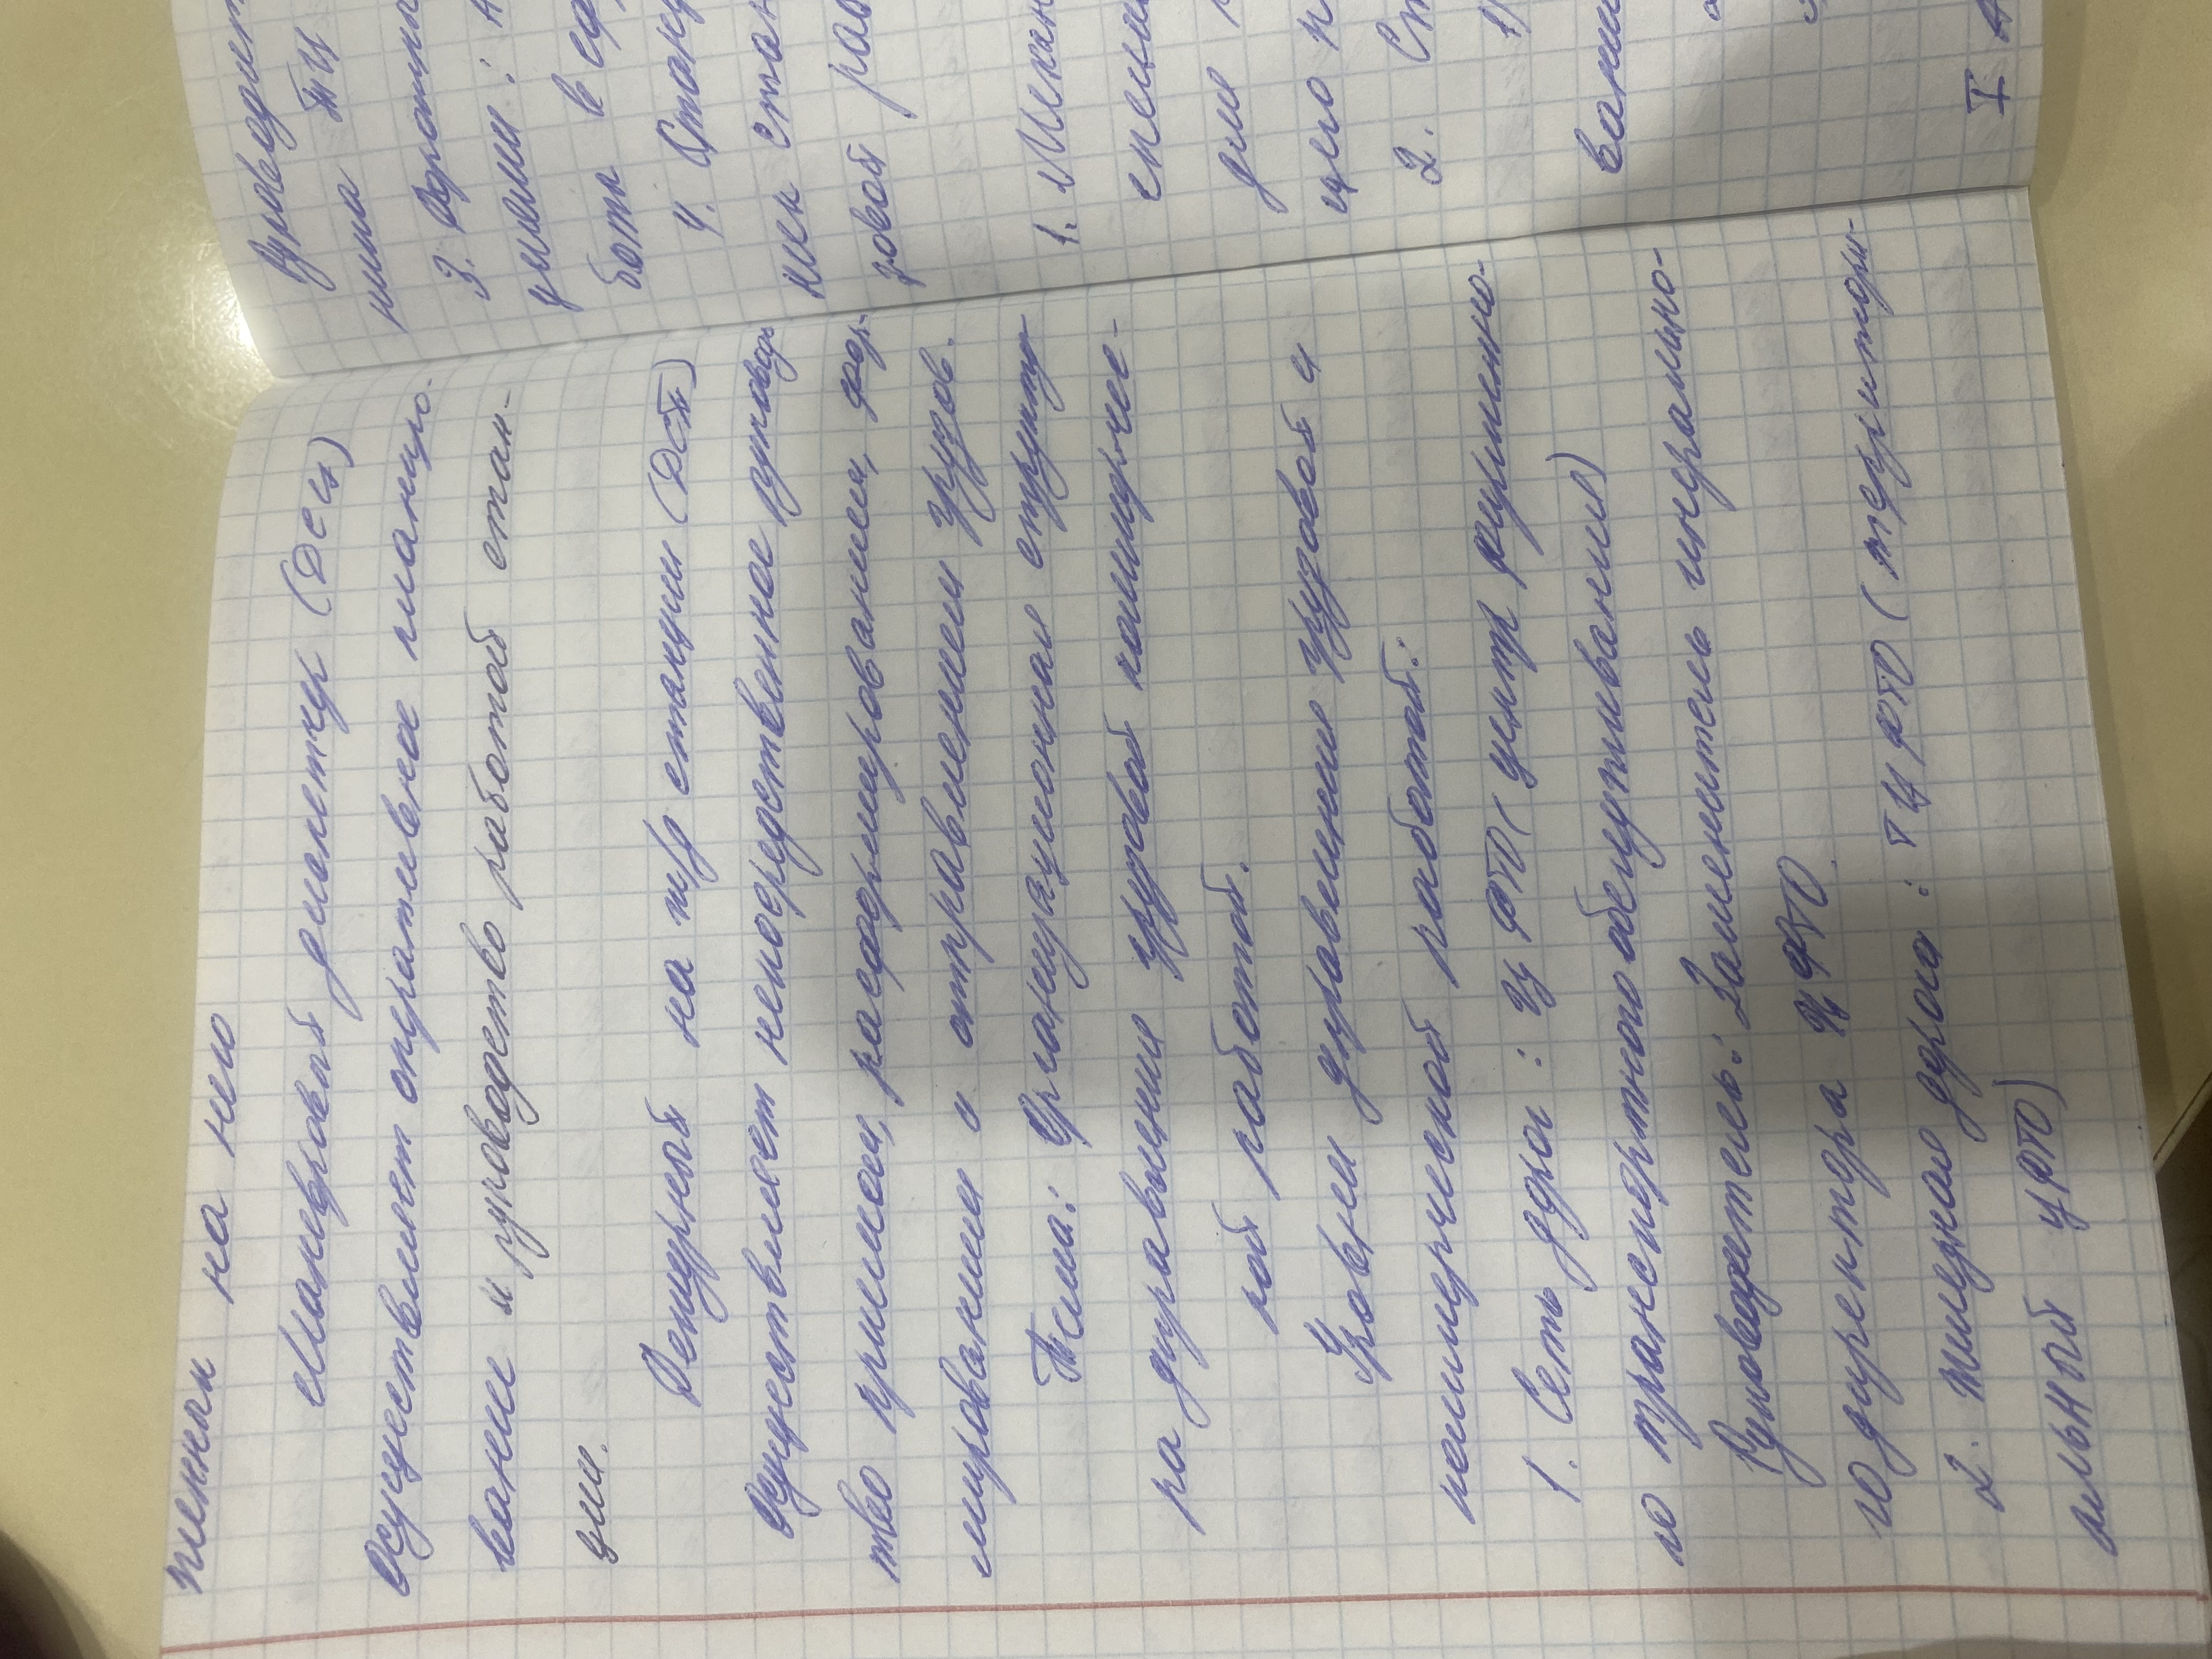 женных на нею
Маневровый диспетчер (ДСЦ)
Осуществляет оперативное планиро-
вание и руководство работой стан-
ции.
Дежурный на ж/д станции (ДСП)
Осуществляет непосредственное руководс
тво приемом, расформированием, фор-
мированием и отправлением грузов.
Тема: Организационная структу
ра управления грузовой коммерчес-
кой работой.
Уровни управления грузовой и
коммерческой работой:
1. Сеть дорог: ЦФТО (центр фирменно-
го транспортного обслуживания)
Руководитель: Заместитель генерально-
го директора ЦФТО.
2. Железная дорога: ТЦФТО (территори-
альный ЦФТО)
Руководит
ника ТЦ
3.
4. Станц
ных стан
зовой раб
1. Механ
2. Ст
1)
вания
I